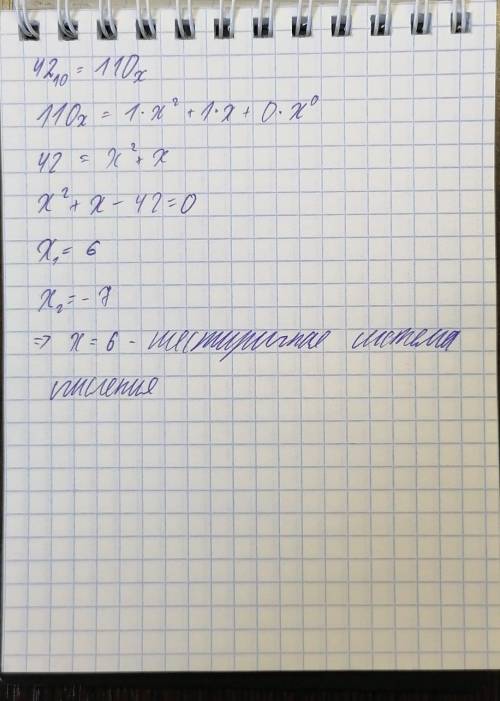 42₁₀ = 110ₓ
110ₓ = 1·x² + 1·x + 0·x⁰
42 = x² + x
x² + x - 42 = 0
x₁ = 6
x₂ = - 7
⇒ x = 6 - шестиричная система
числения